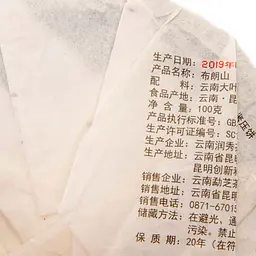 生产日期: 2019年
产品名称: 布朗山
配 料: 云南大叶
食品产地: 云南·昆
净 含 量: 100克
产品执行标准号: GB
生产许可证编号: SC
生产企业: 云南润秀
生产地址: 云南省昆明
昆明创新
销售企业: 云南勐芝
销售地址: 云南省昆明
销售电话: 0871-6701
储藏方法: 在避光、通
污染。禁止
保 质 期: 20年 (在符
压饼